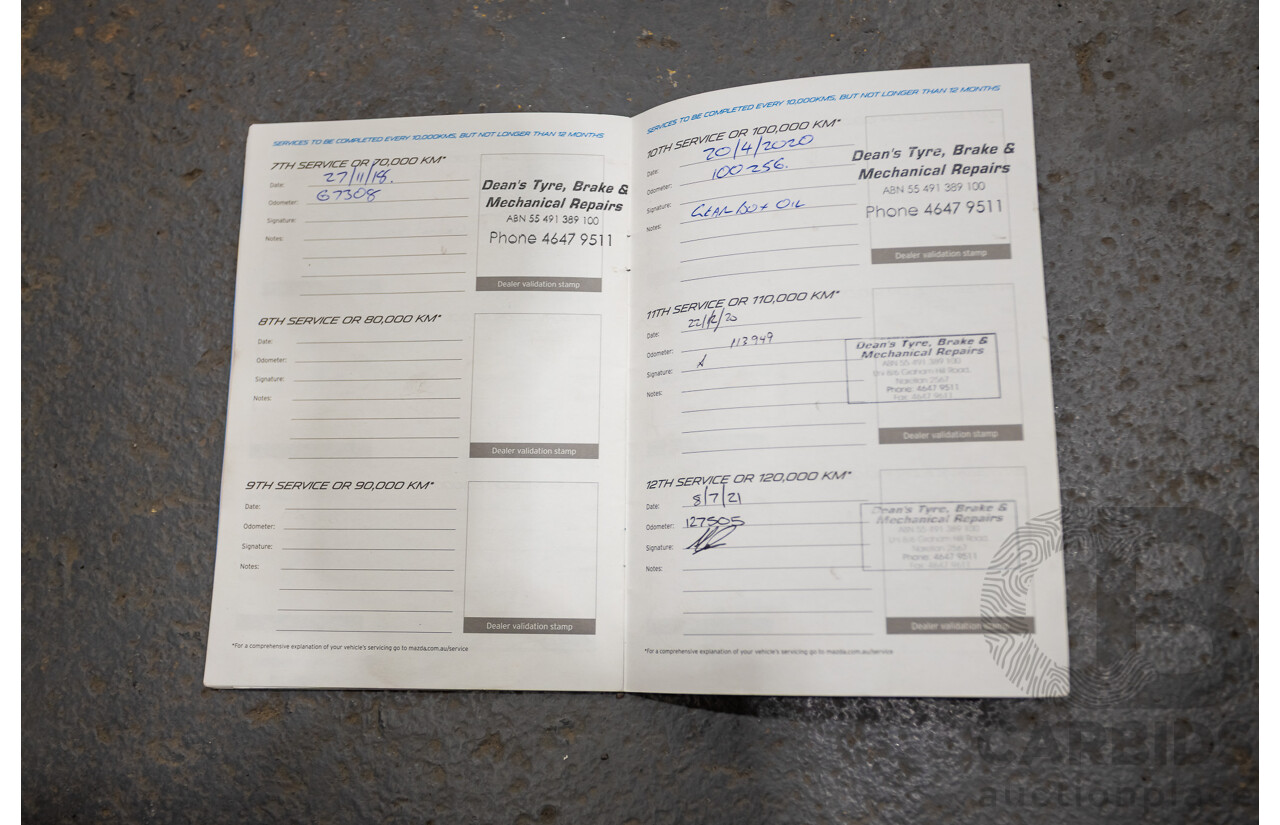 SERVICES TO BE COMPLETED EVERY 10,000KMS, BUT NOT LONGER THAN 12 MONTHS
7TH SERVICE OR 70,000 KM*
Date: 27/11/18.
Odometer: 67308
Signature:
Notes:
Dean's Tyre, Brake &
Mechanical Repairs
ABN 55 491 389 100
Phone 4647 9511
Dealer validation stamp
8TH SERVICE OR 80,000 KM*
Date:
Odometer:
Signature:
Notes:
Dealer validation stamp
9TH SERVICE OR 90,000 KM*
Date:
Odometer:
Signature:
Notes:
Dealer validation stamp
*For a comprehensive explanation of your vehicle's servicing go to mazda.com.au/service
SERVICES TO BE COMPLETED EVERY 10,000KMS, BUT NOT LONGER THAN 12 MONTHS
10TH SERVICE OR 100,000 KM*
Date: 20/4/2020
Odometer: 100256.
Signature:
Notes: GEARBOX OIL
Dean's Tyre, Brake &
Mechanical Repairs
ABN 55 491 389 100
Phone 4647 9511
Dealer validation stamp
11TH SERVICE OR 110,000 KM*
Date: 22/12/20
Odometer: 113949
Signature:
Notes:
Dean's Tyre, Brake &
Mechanical Repairs
ABN 55 491 389 100
Graham Hill Road,
Narellan 2567
Phone: 4647 9511
Fax: 4647 9611
Dealer validation stamp
12TH SERVICE OR 120,000 KM*
Date: 8/7/21
Odometer: 127505
Signature:
Notes:
Dean's Tyre, Brake &
Mechanical Repairs
ABN 55 491 389 100
Graham Hill Road,
Narellan 2567
Phone: 4647 9511
Fax: 4647 9611
Dealer validation stamp
*For a comprehensive explanation of your vehicle's servicing go to mazda.com.au/service
CARBIDS
auctionplace